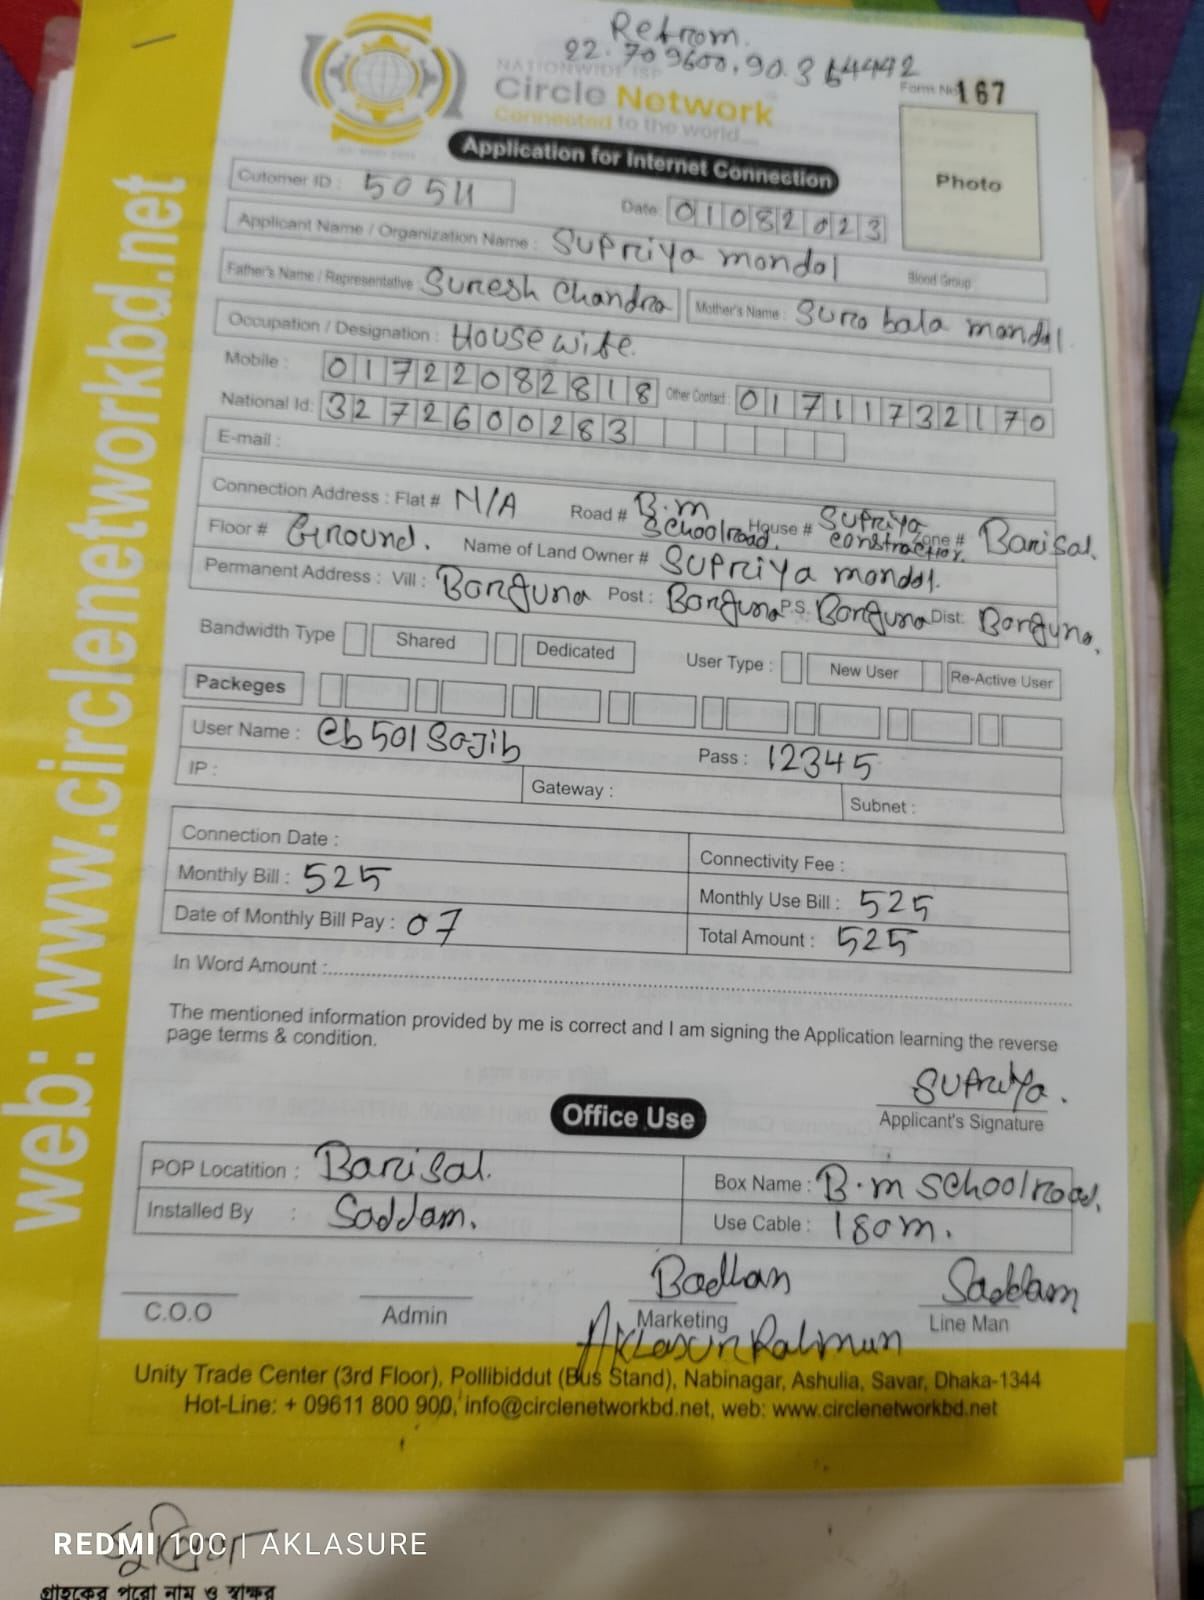 Retrom.
22.709600,90.364492
NATIONWIDE ISP
Circle Network
Connected to the world...
Form No 167
Application for Internet Connection
Photo
Cutomer ID : 5054
Date: 01082023
Applicant Name / Organization Name : Supriya mondal
Blood Group
Father's Name / Representative Suresh Chandra Mother's Name : Suro bala mondal
Occupation / Designation : House wife
Mobile : 01722082818 Other Contact : 01711732170
National Id: 3272600283
E-mail :
Connection Address : Flat # N/A Road # B.m School road, House # Supriya construction, Zone # Barisal.
Floor # Ground. Name of Land Owner # Supriya mondal.
Permanent Address : Vill : Borguna Post : Borguna P.S. Borguna Dist: Borguna,
Bandwidth Type Shared Dedicated User Type : New User Re-Active User
Packeges
User Name : cb501Sajib Pass : 12345
IP : Gateway : Subnet :
Connection Date : Connectivity Fee :
Monthly Bill : 525 Monthly Use Bill : 525
Date of Monthly Bill Pay : 07 Total Amount : 525
In Word Amount :
The mentioned information provided by me is correct and I am signing the Application learning the reverse
page terms & condition.
Supriya.
Applicant's Signature
Office Use
POP Locatition : Barisal. Box Name : B.m School road,
Installed By : Saddam. Use Cable : 180m.
Badhan Saddam
C.O.O Admin Marketing Line Man
Aklasur Rahman
Unity Trade Center (3rd Floor), Pollibiddut (Bus Stand), Nabinagar, Ashulia, Savar, Dhaka-1344
Hot-Line: + 09611 800 900, info@circlenetworkbd.net, web: www.circlenetworkbd.net
web: www.circlenetworkbd.net
সুপ্রিয়া
REDMI 10C | AKLASURE
গ্রাহকের পুরো নাম ও স্বাক্ষর